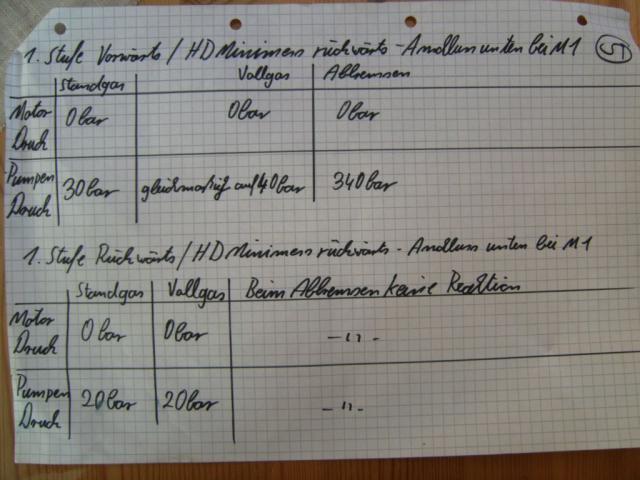 1. Stufe Vorwärts / HD Minimess rückwärts - Anschluss unten bei M1
5
Standgas Vollgas Abbremsen
Motor Druck 0 bar 0 bar 0 bar
Pumpen Druck 30 bar gleichmäßig auf 40 bar 340 bar
1. Stufe Rückwärts / HD Minimess rückwärts - Anschluss unten bei M1
Standgas Vollgas Beim Abbremsen keine Reaktion
Motor Druck 0 bar 0 bar - " -
Pumpen Druck 20 bar 20 bar - " -